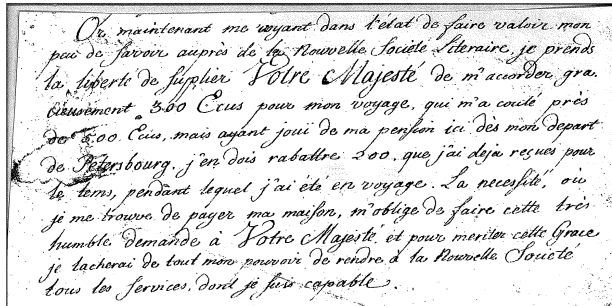 Or, maintenant me voyant dans l'état de faire valoir mon
peu de savoir auprès de la Nouvelle Société Literaire, je prends
la liberté de suplier Votre Majesté de m'accorder gra-
cieusement 300 Ecus pour mon voyage, qui m'a couté près
de 500 Ecus, mais ayant jouï de ma pension ici dès mon depart
de Petersbourg, j'en dois rabattre 200, que j'ai deja reçues pour
le tems, pendant lequel j'ai été en voyage. La necessité, où
je me trouve, de payer ma maison, m'oblige de faire cette très
humble demande à Votre Majesté, et pour meriter cette Grace
je tacherai de tout mon pouvoir de rendre à la Nouvelle Societé
tous les services, dont je suis capable.